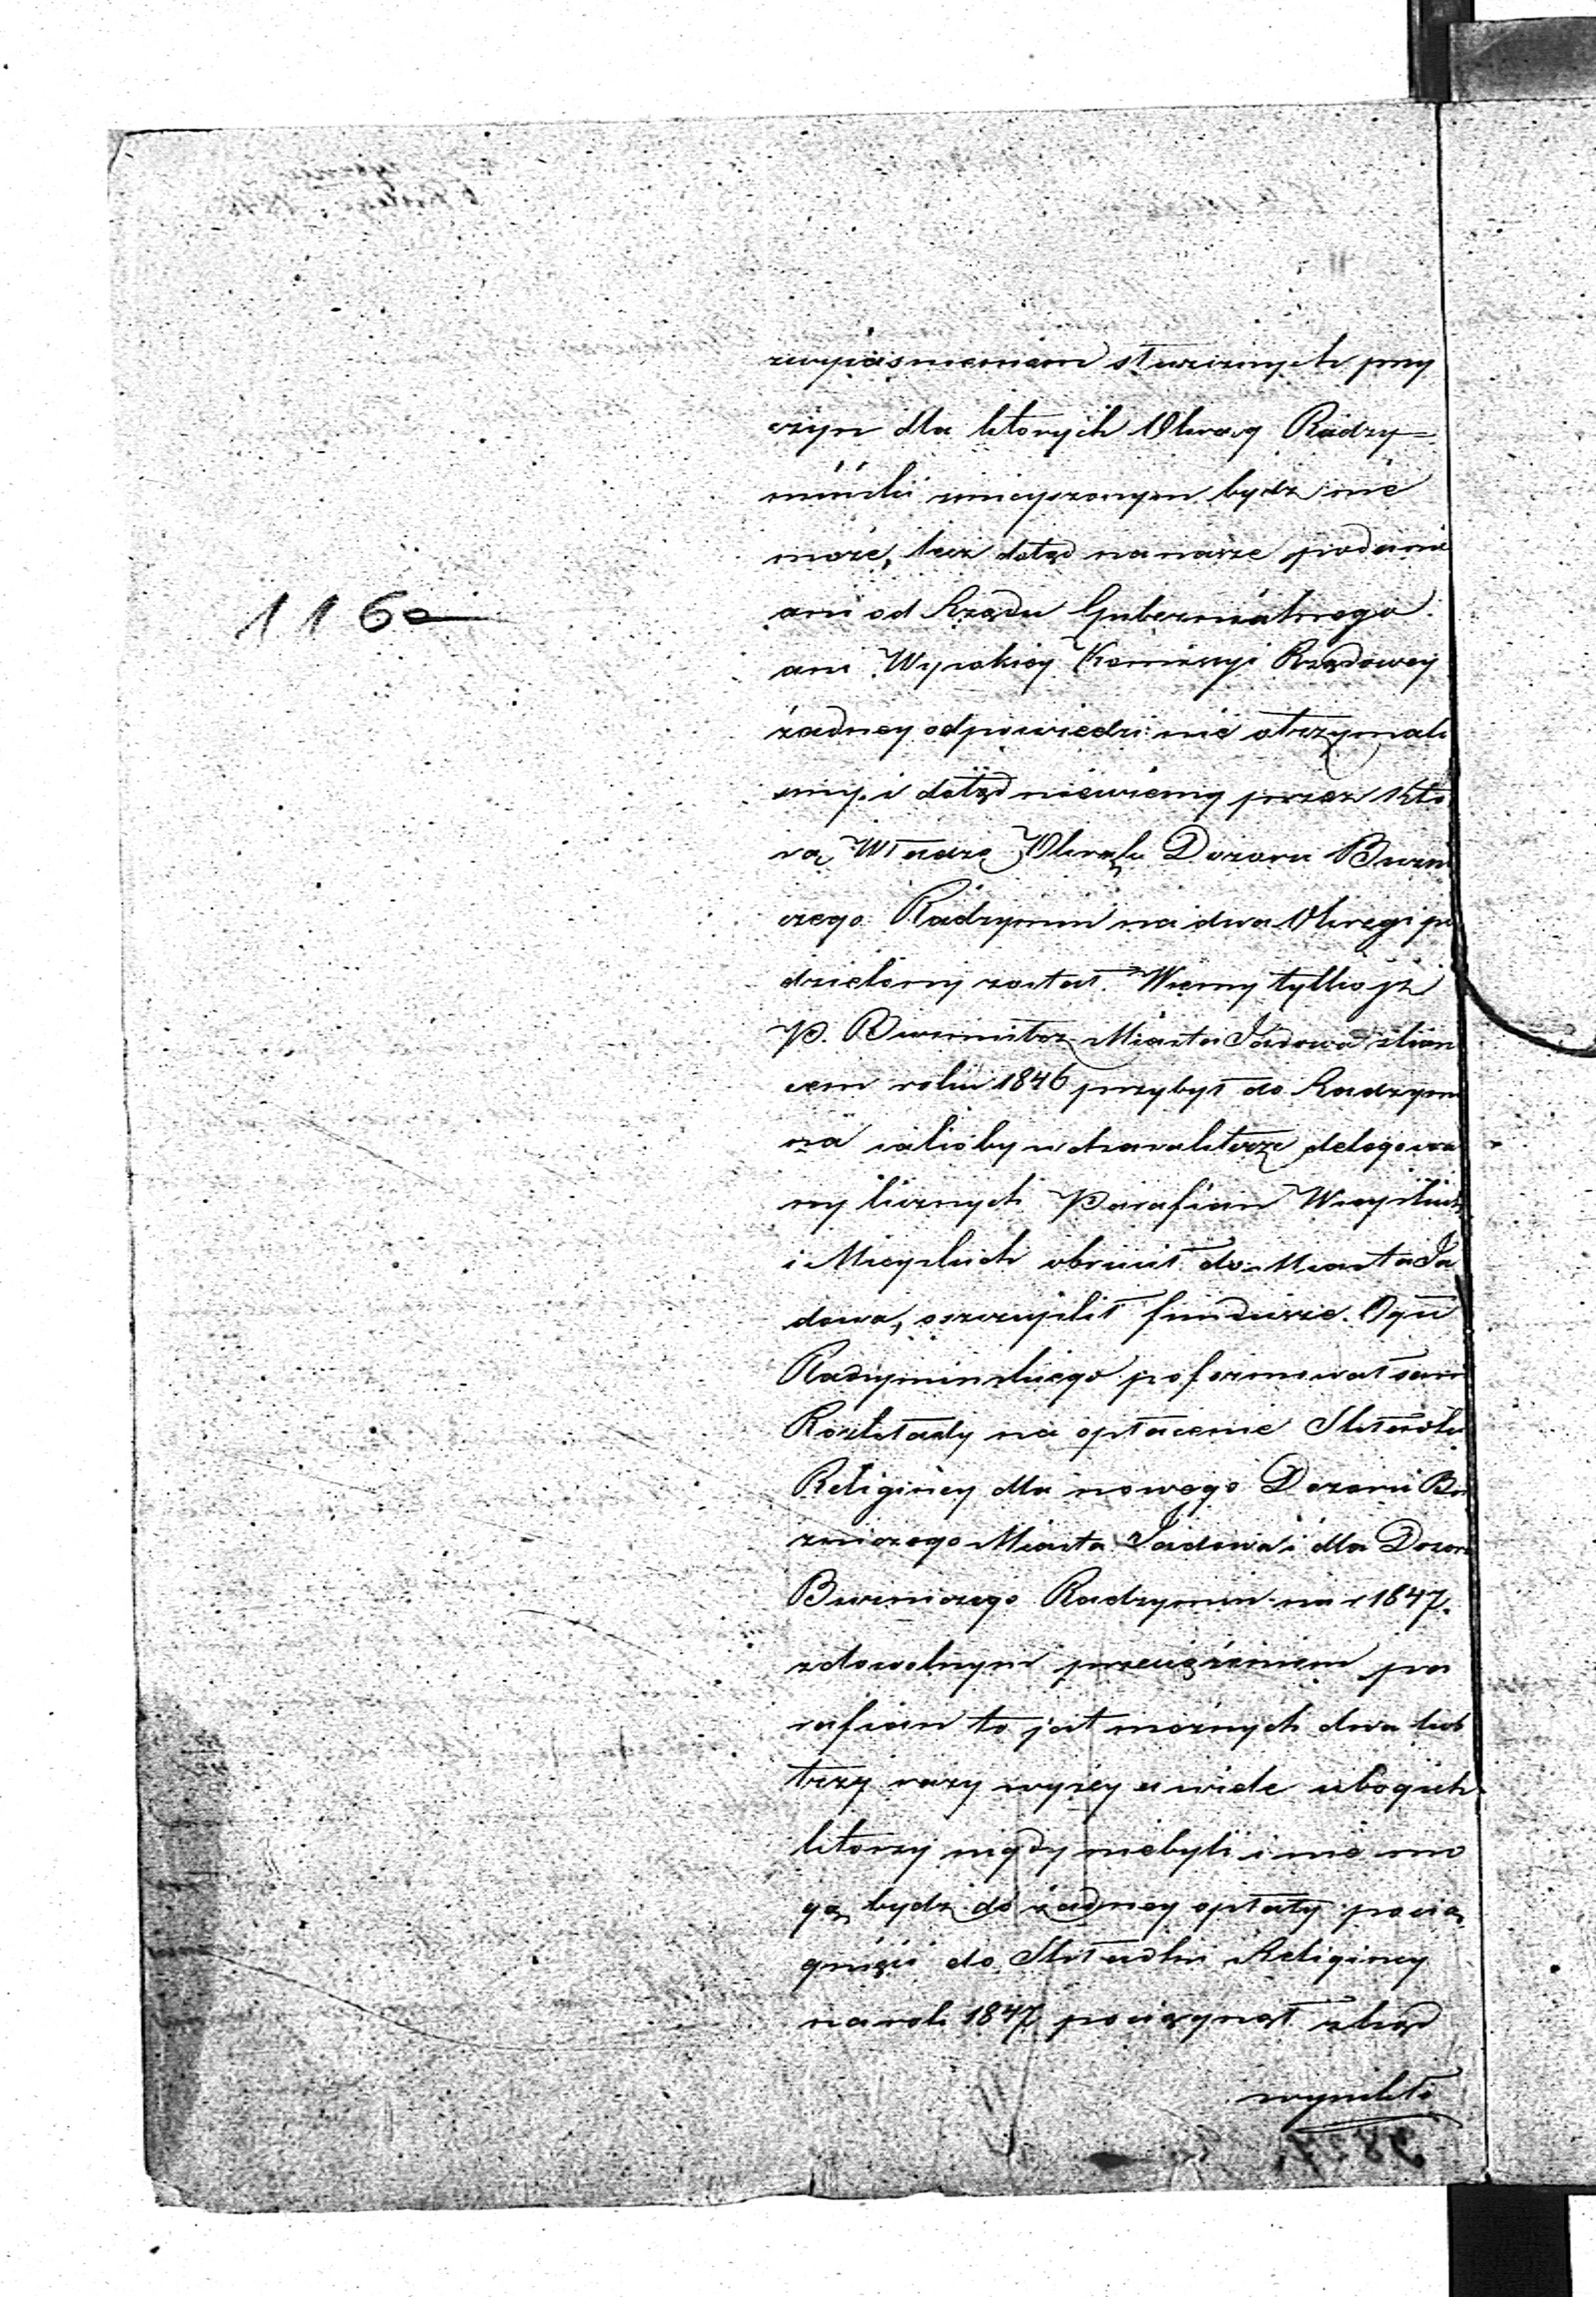 zwyjasnieniem słusznych przy
czyn dla których Okręg Radzy=
miński zmieyszonym bydź nie
może, lecz dotąd na nasze podanie
ani od Rządu Gubernialnego
ani Wysokiey Kommissyi Rządowey
żadney odpowiedzi nie otrzymali
śmy i dotąd niewiemy przez któ
rą Władzę Okręg Dozoru Bużni
czego Radzymin na dwa Okregi po
dzielony został. Wiemy tylko że
P. Burmistrz Miasta Jadowa z koń
cem roku 1846 przybył do Radzymi
na jakoby w charakterze delegowa
ny licznych Parafian Wieyskich
i Mieyskich obrucił do Miasta Ja
dowa, oszczuplił fundusze Ogu
Radzyminskiego poformował sam
Rozkłady na opłacenie Składki
Religiney dla nowego Dozoru Bu
zniczego Miasta Jadowa i dla Dozoru
Buzniczego Radzymin na r 1847.
z dowolnym przeciążeniem pa
rafian to jest możnych dwa lub
trzy razy wyżey a wiele ubogich
którzy nigdy niebyli i nie mo
gą bydź do żadney opłaty pocią
gnięci do Składki Religiney
na rok 1847 pociągnął zkąd
wynikło
116